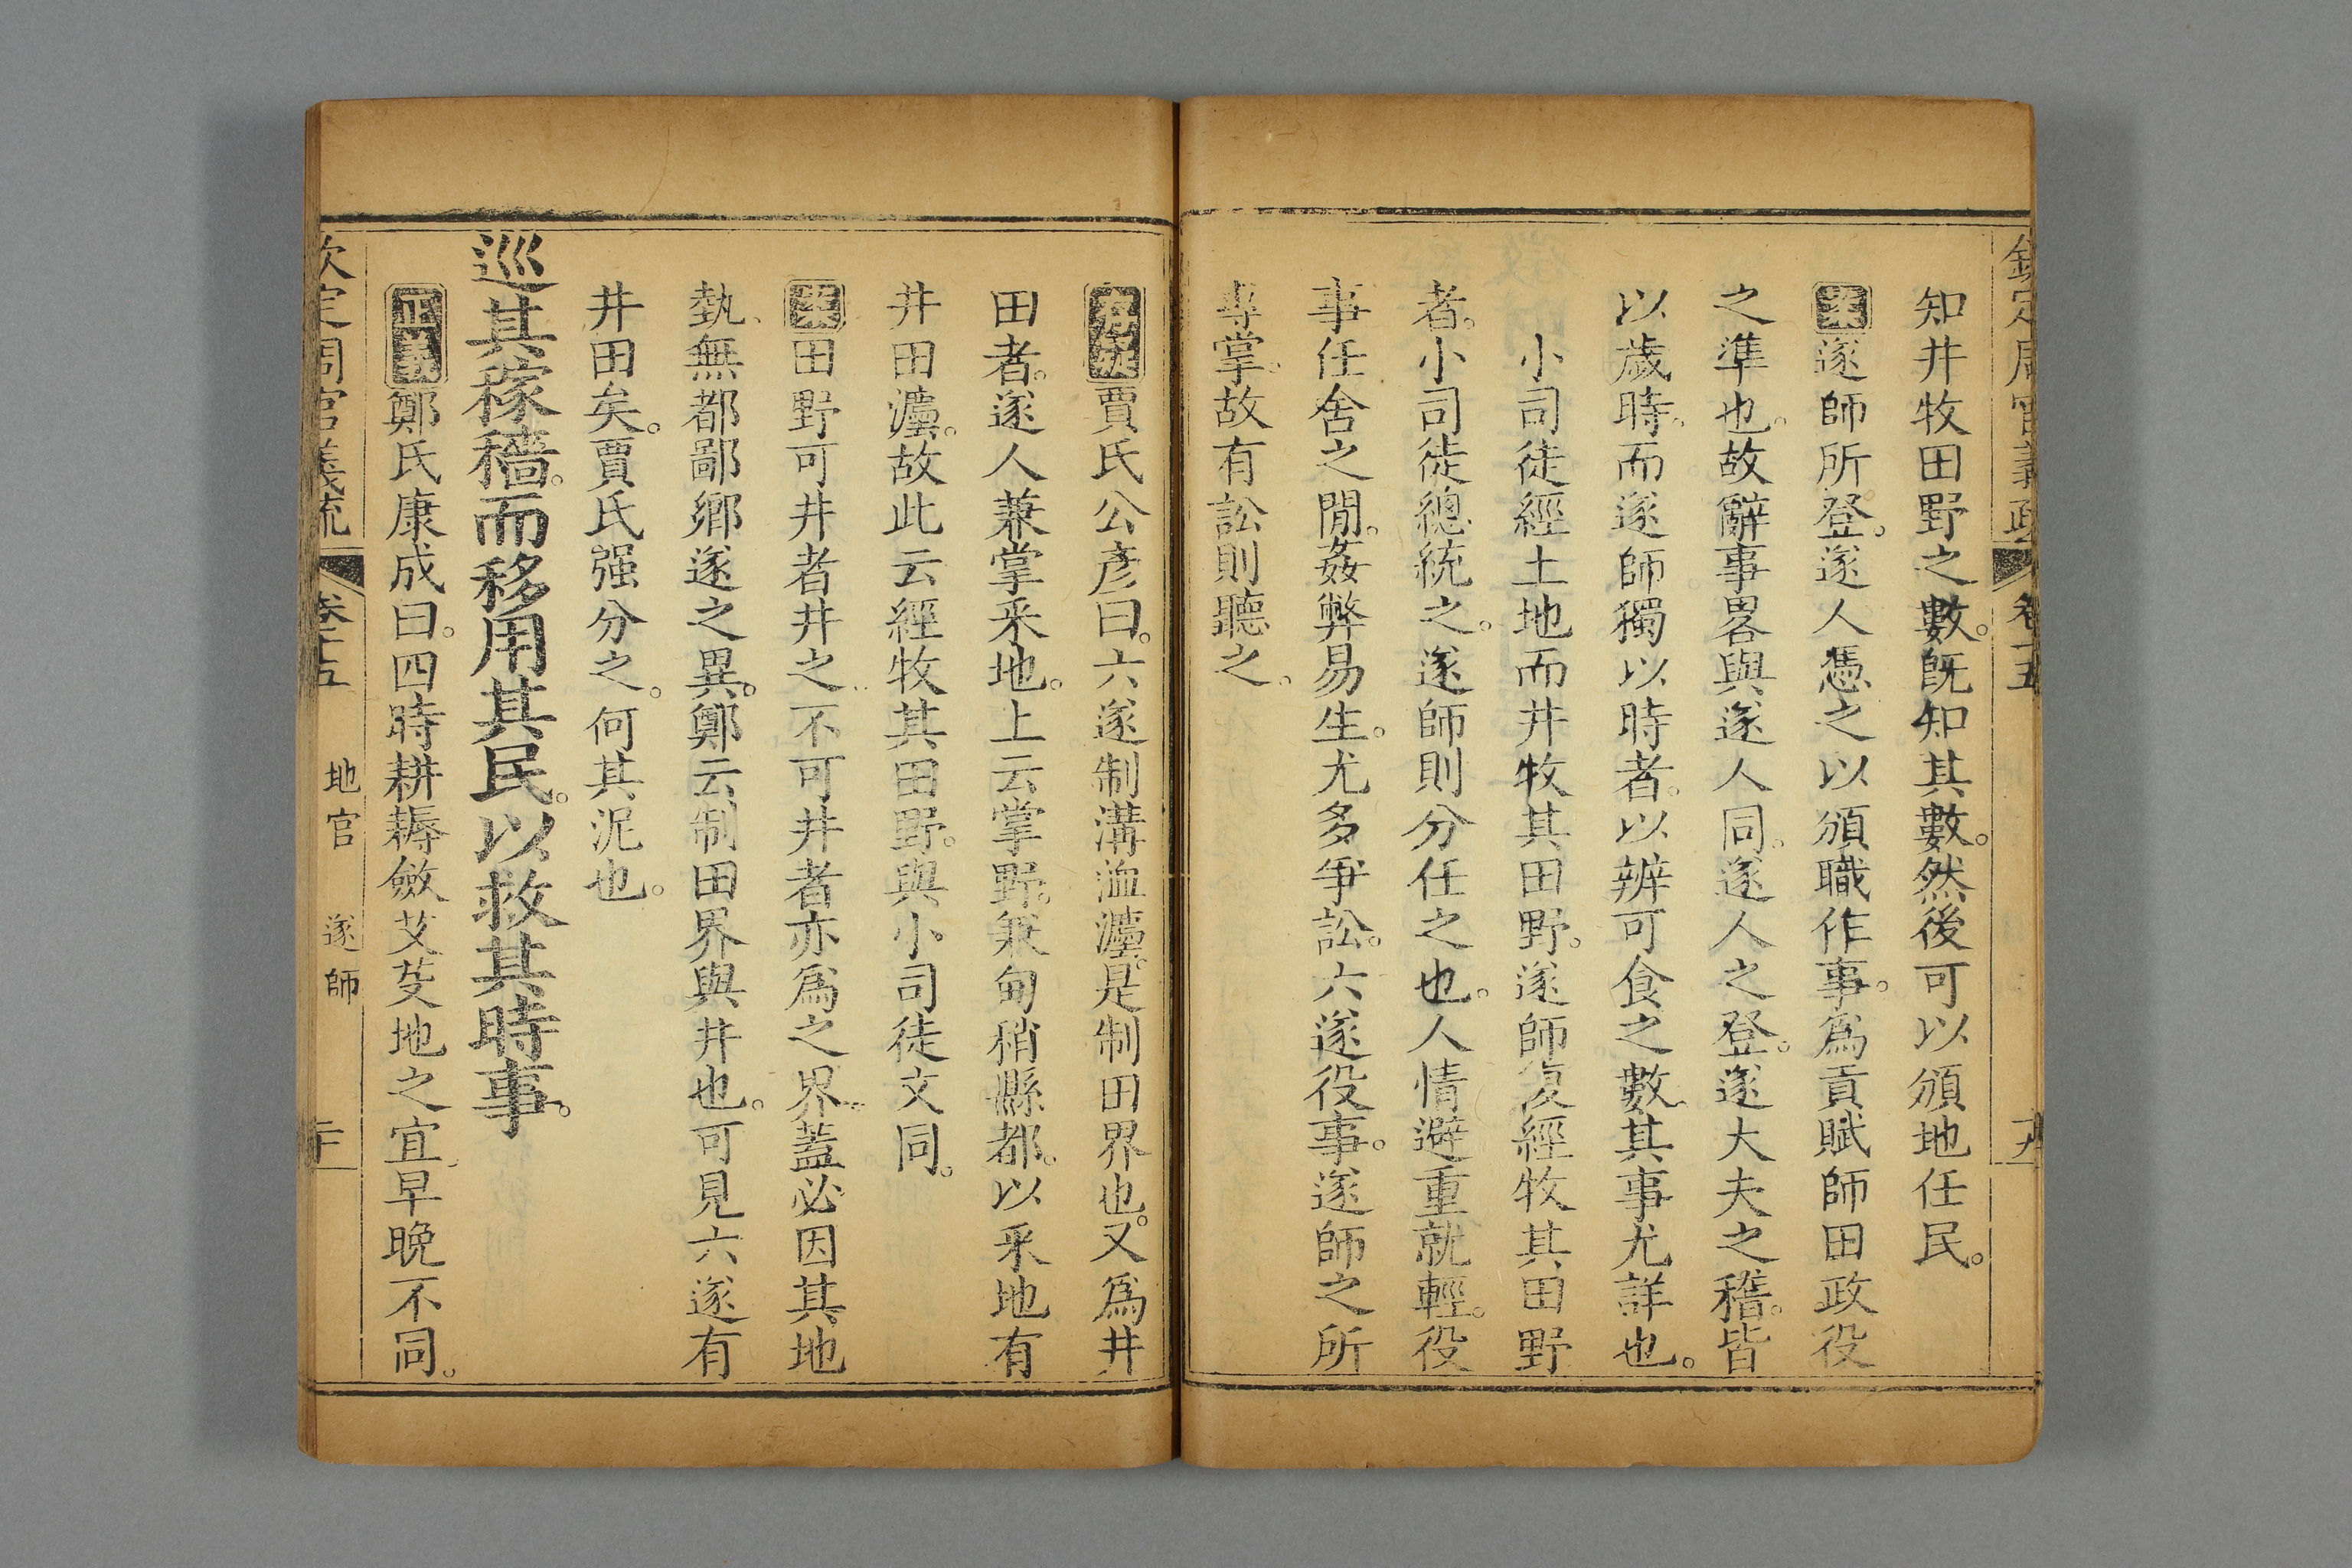 欽定周官義疏 卷十五 十九
知井牧田野之數。既知其數。然後可以頒地任民。
案遂師所登。遂人憑之以頒職作事。爲貢賦師田政役
之準也。故辭事畧與遂人同。遂人之登。遂大夫之稽。皆
以歲時。而遂師獨以時者。以辨可食之數。其事尤詳也。
小司徒經土地而井牧其田野。遂師復經牧其田野
者。小司徒總統之。遂師則分任之也。人情避重就輕。役
事任舍之閒。姦弊易生。尤多爭訟。六遂役事。遂師之所
專掌。故有訟則聽之。
存疑賈氏公彦曰。六遂制溝洫灋。是制田界也。又爲井
田者。遂人兼掌采地。上云掌野。兼甸稍縣都。以采地有
井田灋。故此云經牧其田野。與小司徒文同。
案田野可井者井之。不可井者亦爲之界。蓋必因其地
埶、無都鄙鄉遂之異。鄭云制田界與井也。可見六遂有
井田矣。賈氏强分之。何其泥也。
巡其稼穡。而移用其民。以救其時事。
正義鄭氏康成曰。四時耕耨斂艾芟地之宜、早晚不同。
欽定周官義疏 卷十五 地官 遂師 二十